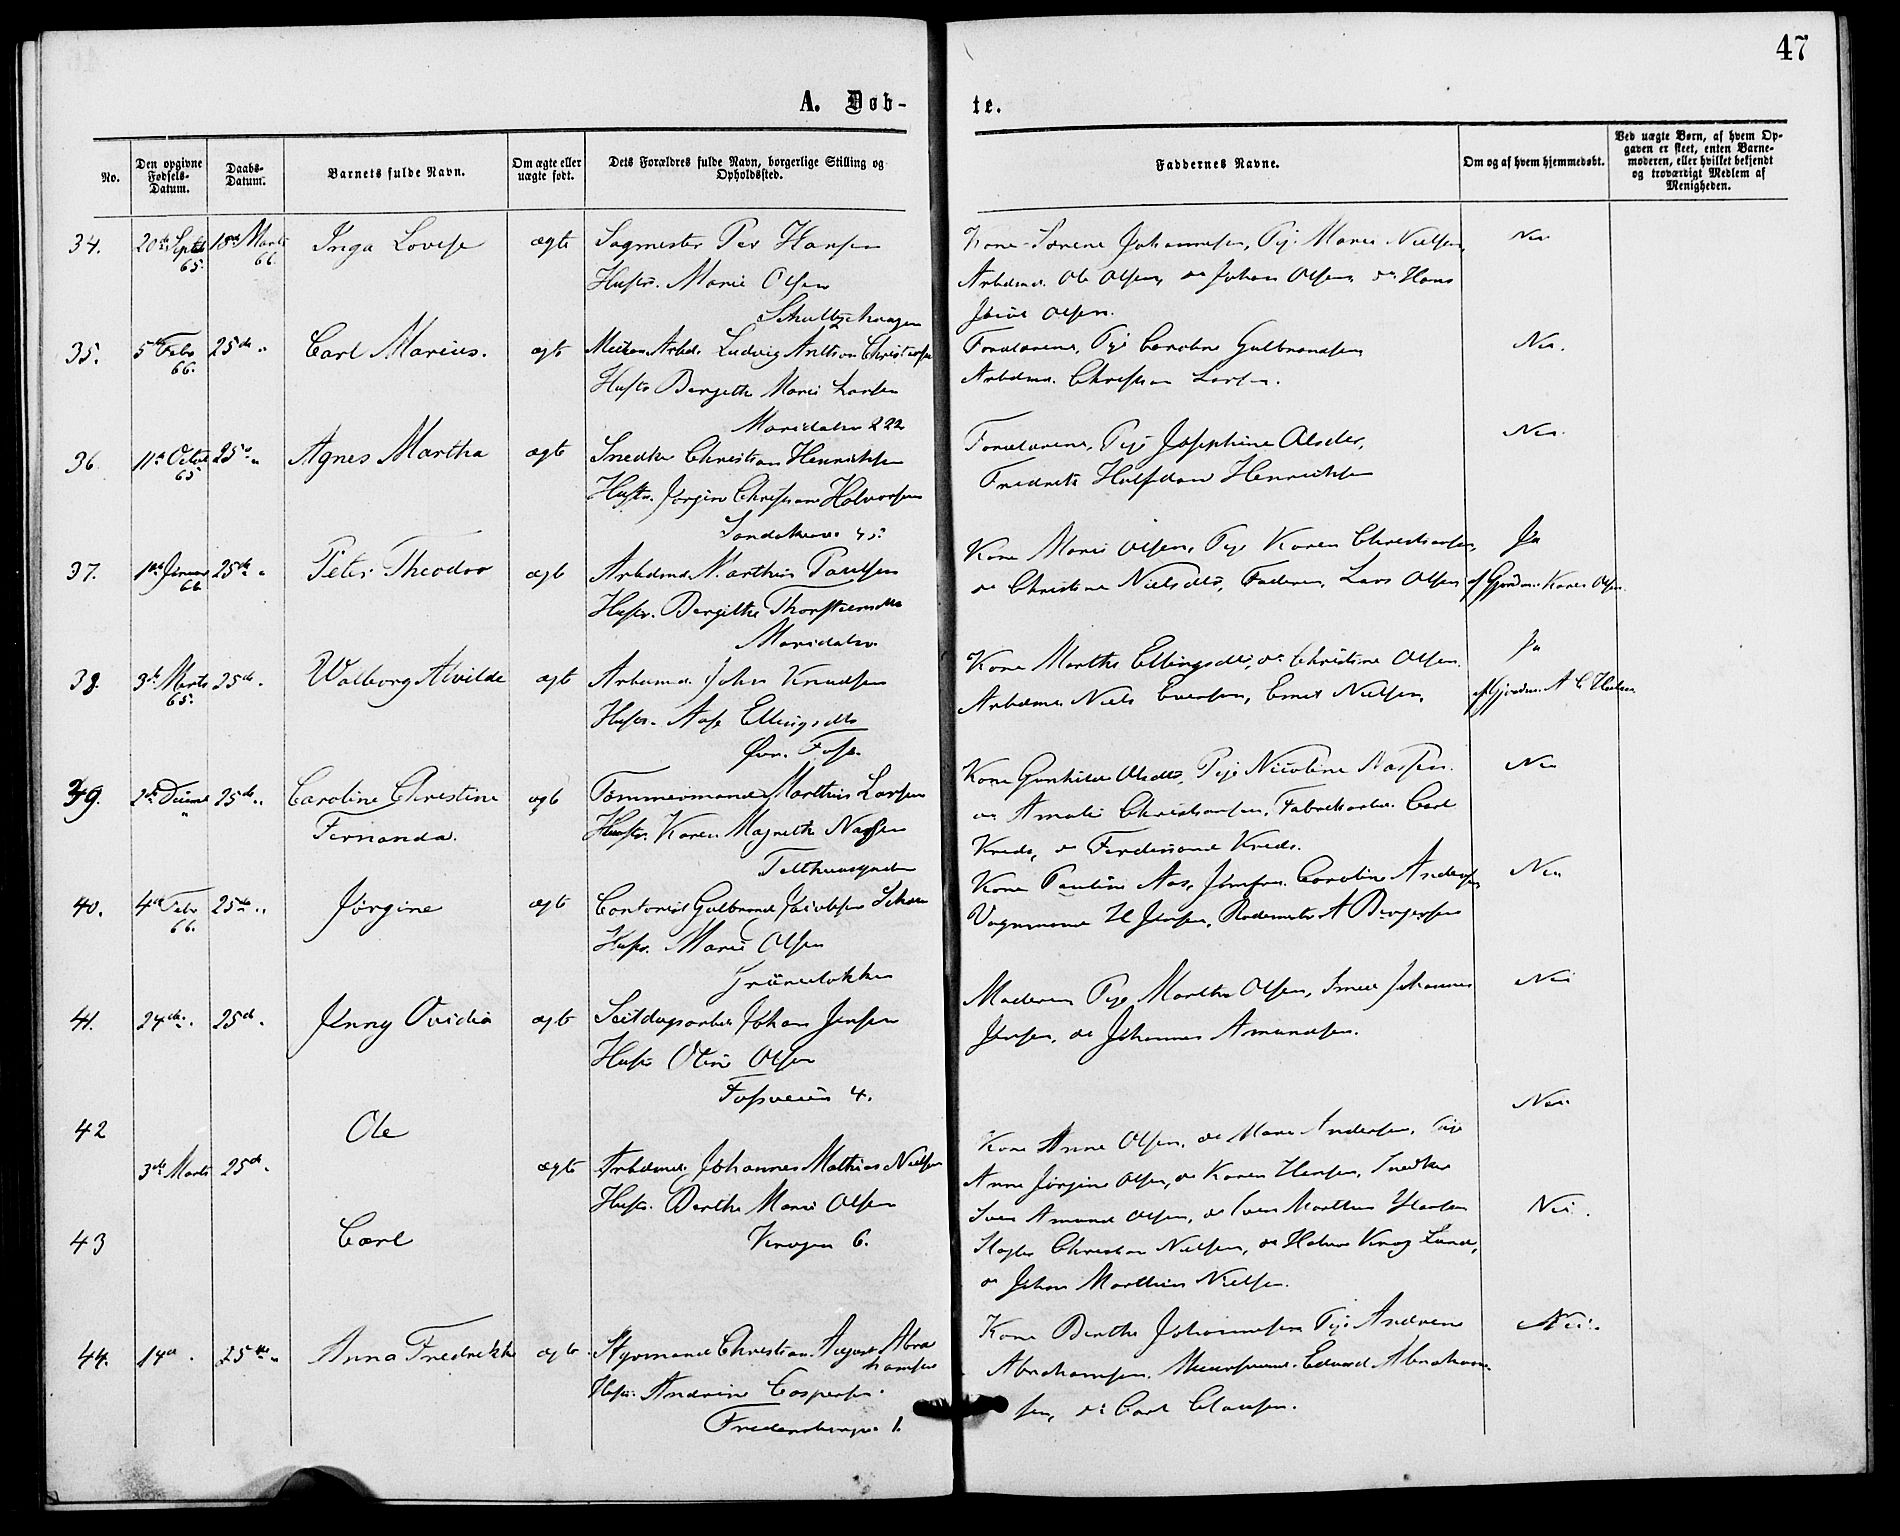 47
A. Døb-
te.
No.
Den opgivne Fødsels-Datum.
Daabs-Datum.
Barnets fulde Navn.
Om ægte eller uægte født.
Dets Forældres fulde Navn, borgerlige Stilling og Opholdssted.
Faddernes Navne.
Om og af hvem hjemmedøbt.
Ved uægte Børn, af hvem Opgaven er skeet, enten Barnemoderen, eller hvilket bekjendt og troværdigt Medlem af Menigheden.
34. 20de Septbr 65. 18de Marts 66. Inga Lovise ægte Sagmester Per Hansen
Hustr. Marie Olsen
Kone Sørene Johannesen, Pige Maren Nielsen,
Arbdmd. Ole Olsen, do Johan Olsen, do Hans
Olsen.
Nei
35. 5te Febr 66. 25de " Carl Marius. ægte Arbdr. Ludvig Anton Christensen
Hustr Bergitte Marie Larsen
Maridalsv 222
Forældrene, Pige Caroline Gulbrandsen,
Arbdmd. Christian Larsen.
Nei.
36. 11te Octbr 65 25de " Agnes Martha ægte Snedker Christian Henriksen
Hustr. Jørgine Christiane Halvorsen
Sandakerv. 45.
Forældrene, Pige Josephine Olsdtr,
Halfdan Henriksen
Nei
37. 1ste Januar 66 25de " Peter Theodor ægte Arbdmd Marthin Paulsen
Hustr. Bergitte Thorstensdtr
Maridalsv.
Kone Marie Olsen, Pige Karen Christiansen,
do Christine Nielsdtr, Faderen, Lars Olsen
Ja
af Gjordm. Karen Olsen.
38. 3de Marts 65. 25de " Walborg Alvilde ægte Arbdmd. John Knudsen
Hustr. Aase Ellingsdtr
Øvr. Foss.
Kone Marthe Ellingsdtr, do Christine Olsen.
Arbdmd. Niels Evensen, Emil Nielsen,
Ja
af Gjordm. A C
39. 2de Decmbr " 25de " Caroline Christine
Fernanda.
ægte Tømmermand Marthin Larsen
Hustr. Karen Magrethe
Kone Gunhilde Olsdtr, Pige Nicoline
do Amalie Christiansen, Fabrikarbr. Carl
Kreds, do Ferdinand Kreds.
Nei
40. 4de Febr 66. 25de " Jørgine ægte Contorist Gulbrand Jacobsen
Hustr. Marie Olsen
Grünerløkken
Kone Pauline Aas, Jomfru Caroline Andersen
Vognmand H Jensen, A Birgersen
Nei
41. 24de " 25de " Jenny Ovidia ægte Johan Jensen
Hustr Oline Olsen
Fossveien 4.
Moderen, Pige Marthe Olsen, Smed Johannes
Jensen, do Johannes Amundsen.
Nei
42 Ole
3de Marts 25de "
ægte Arbdmd. Johannes Mathias Nielsen
Hustr. Berthe Marie Olsen
Krogen 6.
43 Carl
Kone Anne Olsen, do Maren Andersen, Pige
Anne Jørgine Olsen, do Karen Hansen, Snedker
Amund Olsen, do Iver Marthin Hansen
Christian Nielsen, do Halvor Krog Lund,
do Johan Marthin Nielsen.
Nei
Nei.
44. 14de " 25de " Anna Fredrikke ægte Styrmand Christian August Abra
hamsen
Hustr. Andrine Caspersen.
Kone Berthe Johannesen Pige Andrine
Abrahamsen, Murersvend. Edvard Abraham
sen, do Carl Clausen.
Nei.